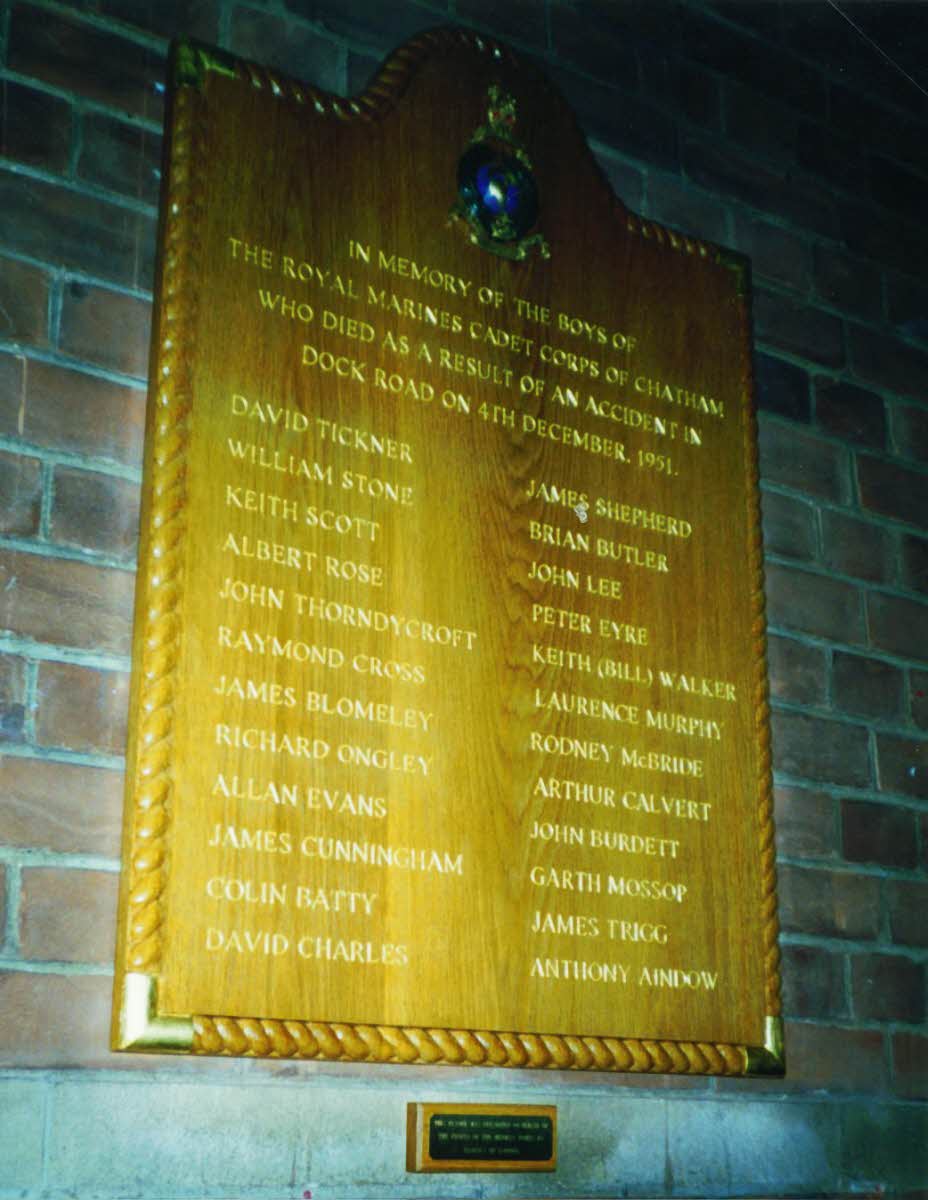 IN MEMORY OF THE BOYS OF
THE ROYAL MARINES CADET CORPS OF CHATHAM
WHO DIED AS A RESULT OF AN ACCIDENT IN
DOCK ROAD ON 4TH DECEMBER, 1951.
DAVID TICKNER
WILLIAM STONE
KEITH SCOTT
ALBERT ROSE
JOHN THORNDYCROFT
RAYMOND CROSS
JAMES BLOMELEY
RICHARD ONGLEY
ALLAN EVANS
JAMES CUNNINGHAM
COLIN BATTY
DAVID CHARLES
JAMES SHEPHERD
BRIAN BUTLER
JOHN LEE
PETER EYRE
KEITH (BILL) WALKER
LAURENCE MURPHY
RODNEY McBRIDE
ARTHUR CALVERT
JOHN BURDETT
GARTH MOSSOP
JAMES TRIGG
ANTHONY AINDOW